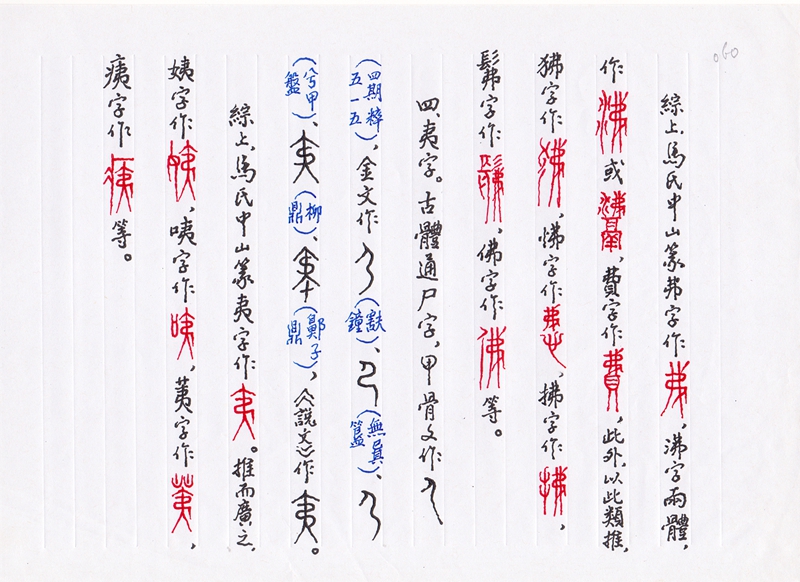 060
綜上,馬氏中山篆弗字作弗,沸字兩體,
作沸或𩰾,費字作費,此外,以此類推,
狒字作狒,怫字作怫,拂字作拂,
髴字作髴,佛字作佛等。
四、夷字。古體通尸字,甲骨文作
(四期粹五一五),金文作(㝬鐘)、(無㠱簋)、
(兮甲盤)、夷(柳鼎)、(鄸子鼎),《說文》作夷。
綜上,馬氏中山篆夷字作夷。推而廣之,
姨字作姨,咦字作咦,荑字作荑,
痍字作痍等。